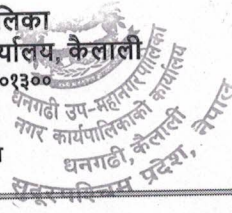 लिका
र्यालय, कैलाली
०१३००
धनगढी उप-महानगरपालिका
नगर कार्यपालिकाको कार्यालय
धनगढी, कैलाली
सुदूरपश्चिम प्रदेश, नेपाल